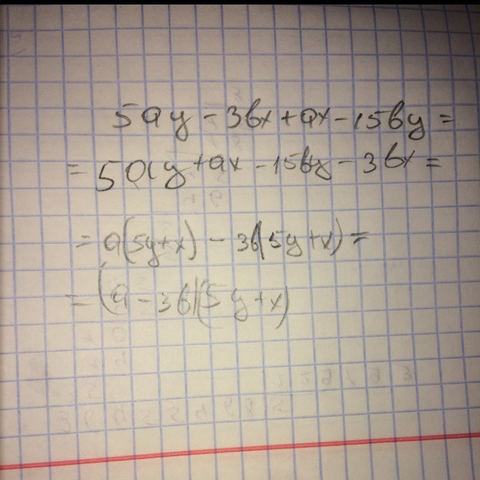 5ay - 3bx + ax - 15by =
= 5ay + ax - 15by - 3bx =
= a(5y+x) - 3b(5y+x) =
= (a - 3b)(5y+x)